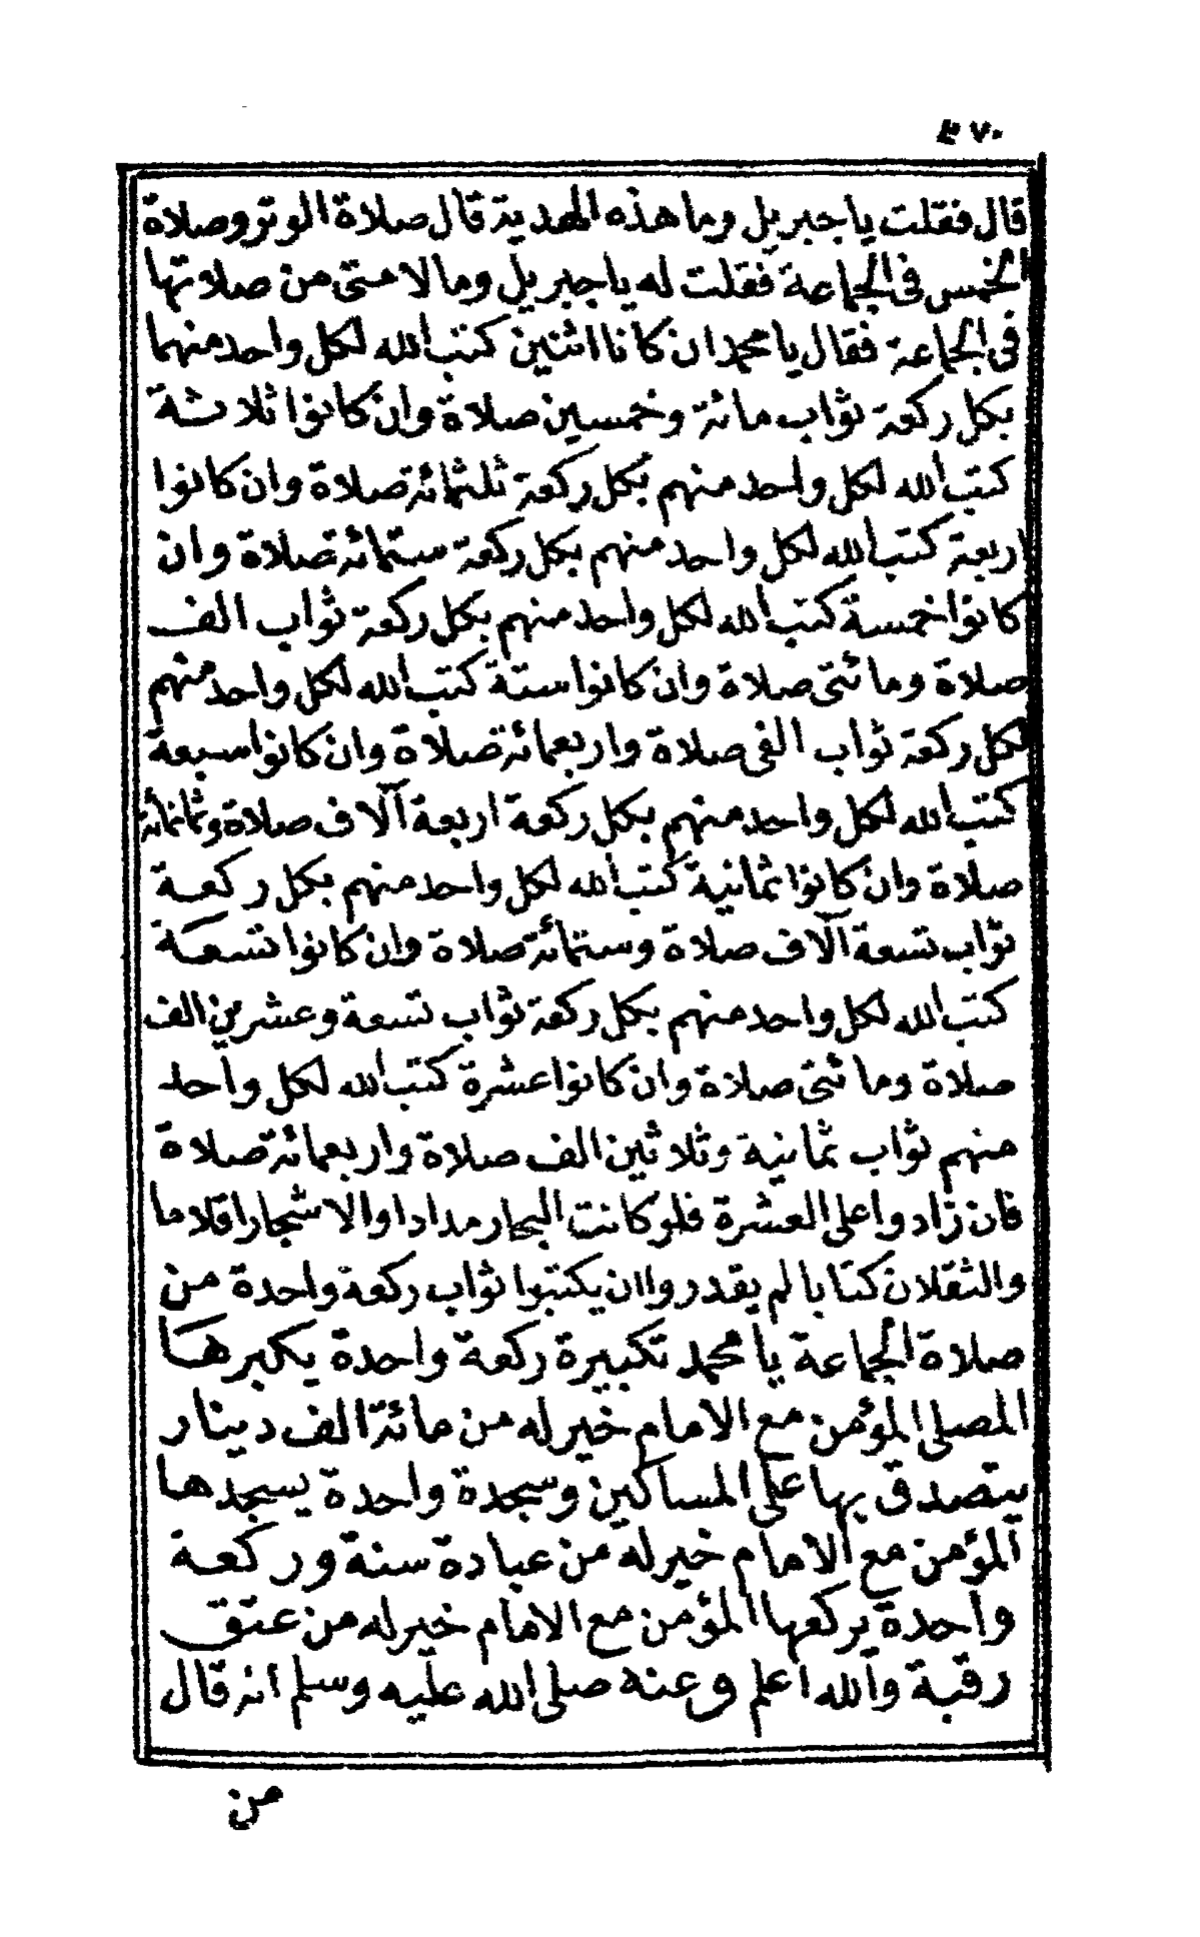 ٢٧٠
قال فقلت يا جبريل وما هذه الهدية قال صلاة الوتر وصلاة
الخمس فى الجماعة فقلت له يا جبريل وما لامتى من صلاتها
فى الجماعة فقال يا محمد ان كانا اثنين كتب الله لكل واحد منهما
بكل ركعة ثواب مائة وخمسين صلاة وان كانوا ثلاثة
كتب الله لكل واحد منهم بكل ركعة ثلثمائة صلاة وان كانوا
اربعة كتب الله لكل واحد منهم بكل ركعة ستمائة صلاة وان
كانوا خمسة كتب الله لكل واحد منهم بكل ركعة ثواب الف
صلاة ومائتى صلاة وان كانوا ستة كتب الله لكل واحد منهم
لكل ركعة ثواب الفى صلاة واربعمائة صلاة وان كانوا سبعة
كتب الله لكل واحد منهم بكل ركعة اربعة آلاف صلاة وثمانمائة
صلاة وان كانوا ثمانية كتب الله لكل واحد منهم بكل ركعة
ثواب تسعة آلاف صلاة وستمائة صلاة وان كانوا تسعة
كتب الله لكل واحد منهم بكل ركعة ثواب تسعة وعشرين الف
صلاة ومائتى صلاة وان كانوا عشرة كتب الله لكل واحد
منهم ثواب ثمانية وثلاثين الف صلاة واربعمائة صلاة
فان زادوا على العشرة فلو كانت البحار مدادا والاشجار اقلاما
والثقلان كتابا لم يقدروا ان يكتبوا ثواب ركعة واحدة من
صلاة الجماعة يا محمد تكبيرة ركعة واحدة يكبرها
المصلى المؤمن مع الامام خير له من مائة الف دينار
يتصدق بها على المساكين وسجدة واحدة يسجدها
المؤمن مع الامام خير له من عبادة سنة وركعة
واحدة يركعها المؤمن مع الامام خير له من عتق
رقبة والله اعلم وعنه صلى الله عليه وسلم انه قال
من